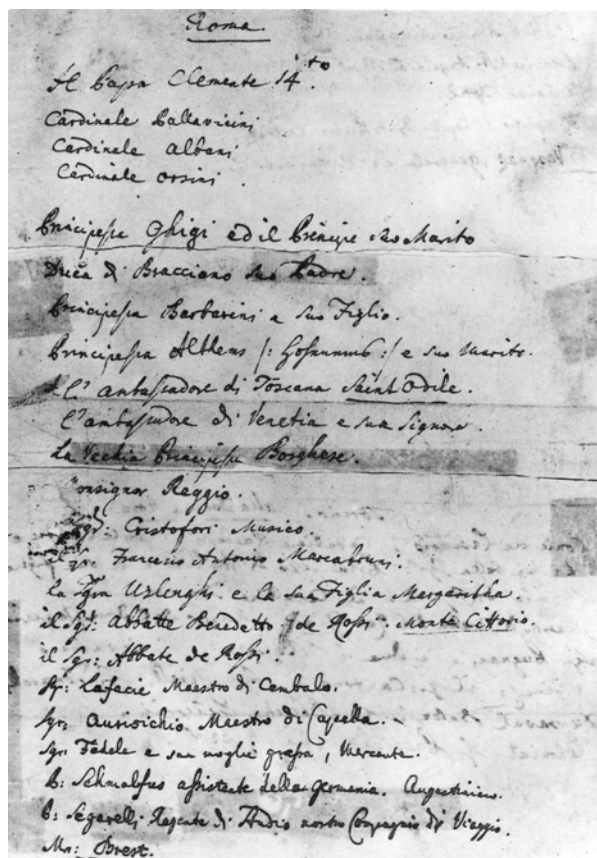 Roma.
Il Papa Clemente 14to.
Cardinale Pallavicini
Cardinale Albani
Cardinale Orsini.
Principessa Ghigi ed il Principe suo Marito
Duca di Bracciano suo Padre.
Principessa Barbarini e suo Figlio.
Principessa Althems /: :/ e suo Marito.
L'ambassadore di Toscana Saint Odile.
L'ambassadore di Venetia e sua Signora.
La Vecchia Principessa Borghese.
Monsignor Reggio.
Sgr: Cristofori Musico.
il Francesco Antonio Marcabruni.
la Sgra Uslenghi e la sua Figlia Margaritha.
il Sgr: Abbatte Benedetto de Rossi. Monte Cittorio.
il Sgr: Abbate de Rossi.
Sgr: Lafacie Maestro di Cembalo.
Sgr: Aurisichio Maestro di Capella.
Sgr: Fedele e sua moglie grassa, Mercante.
P: Schmalfus assistente della germania. Augustiniano.
P: Segarelli Regente di Studio nostro Compagnio di Viaggio.
Mr: Brest.